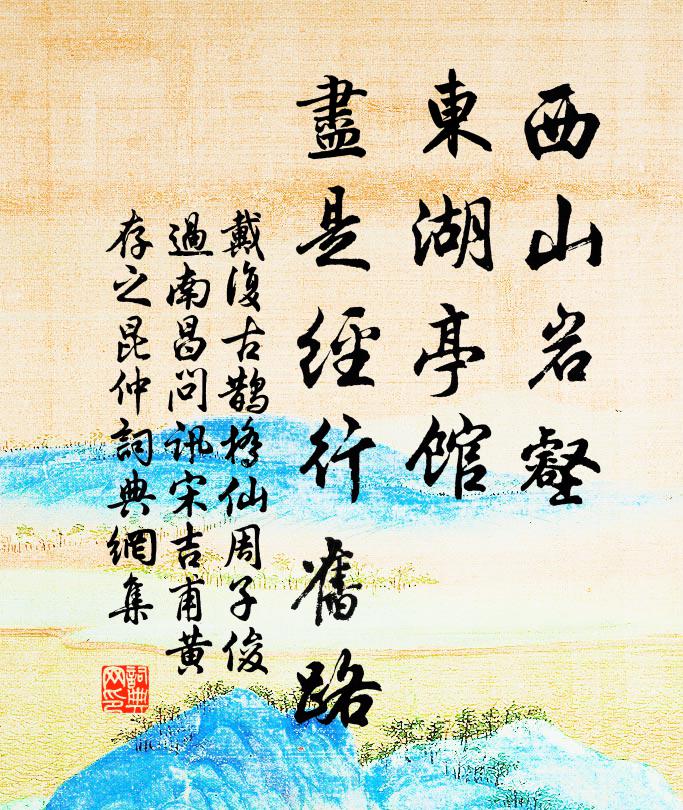 西山岩壑
東湖亭館
盡是經行舊路
戴復古鵲橋仙周子俊
過南昌問訊宋吉甫黄
存之昆仲詞典網集
詞典網印